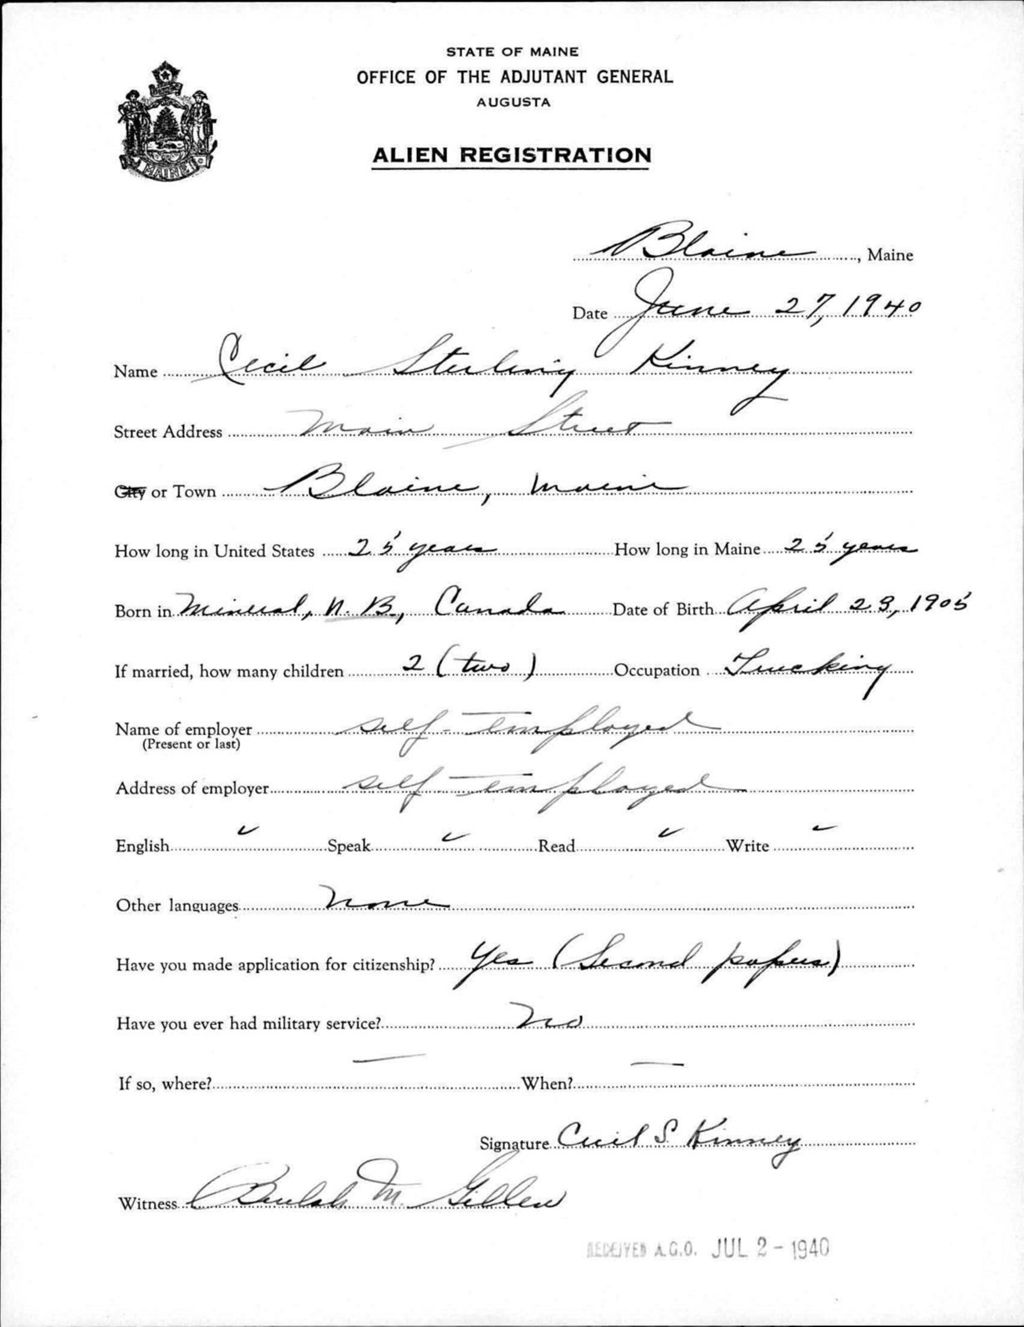 STATE OF MAINE
OFFICE OF THE ADJUTANT GENERAL
AUGUSTA
ALIEN REGISTRATION
MAINE
Blaine, Maine
Date June 27, 1940
Name Cecil Sterling Kinney
Street Address Main Street
City or Town Blaine, Maine
How long in United States 25 years How long in Maine 25 years
Born in Mineral, N. B., Canada Date of Birth April 23, 1905
If married, how many children 2 (two) Occupation Trucking
Name of employer self-employed
(Present or last)
Address of employer self-employed
English ✓ Speak ✓ Read ✓ Write ✓
Other languages none
Have you made application for citizenship? Yes (Second papers)
Have you ever had military service? No
If so, where? — When? —
Signature Cecil S. Kinney
Witness Beulah M. Gillen
RECEIVED A.G.O. JUL 2 - 1940